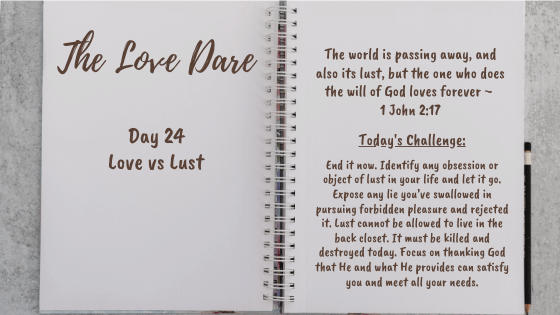 The Love Dare
Day 24
Love vs Lust
The world is passing away, and
also its lust, but the one who does
the will of God loves forever ~
1 John 2:17
Today's Challenge:
End it now. Identify any obsession or
object of lust in your life and let it go.
Expose any lie you've swallowed in
pursuing forbidden pleasure and rejected
it. Lust cannot be allowed to live in the
back closet. It must be killed and
destroyed today. Focus on thanking God
that He and what He provides can satisfy
you and meet all your needs.